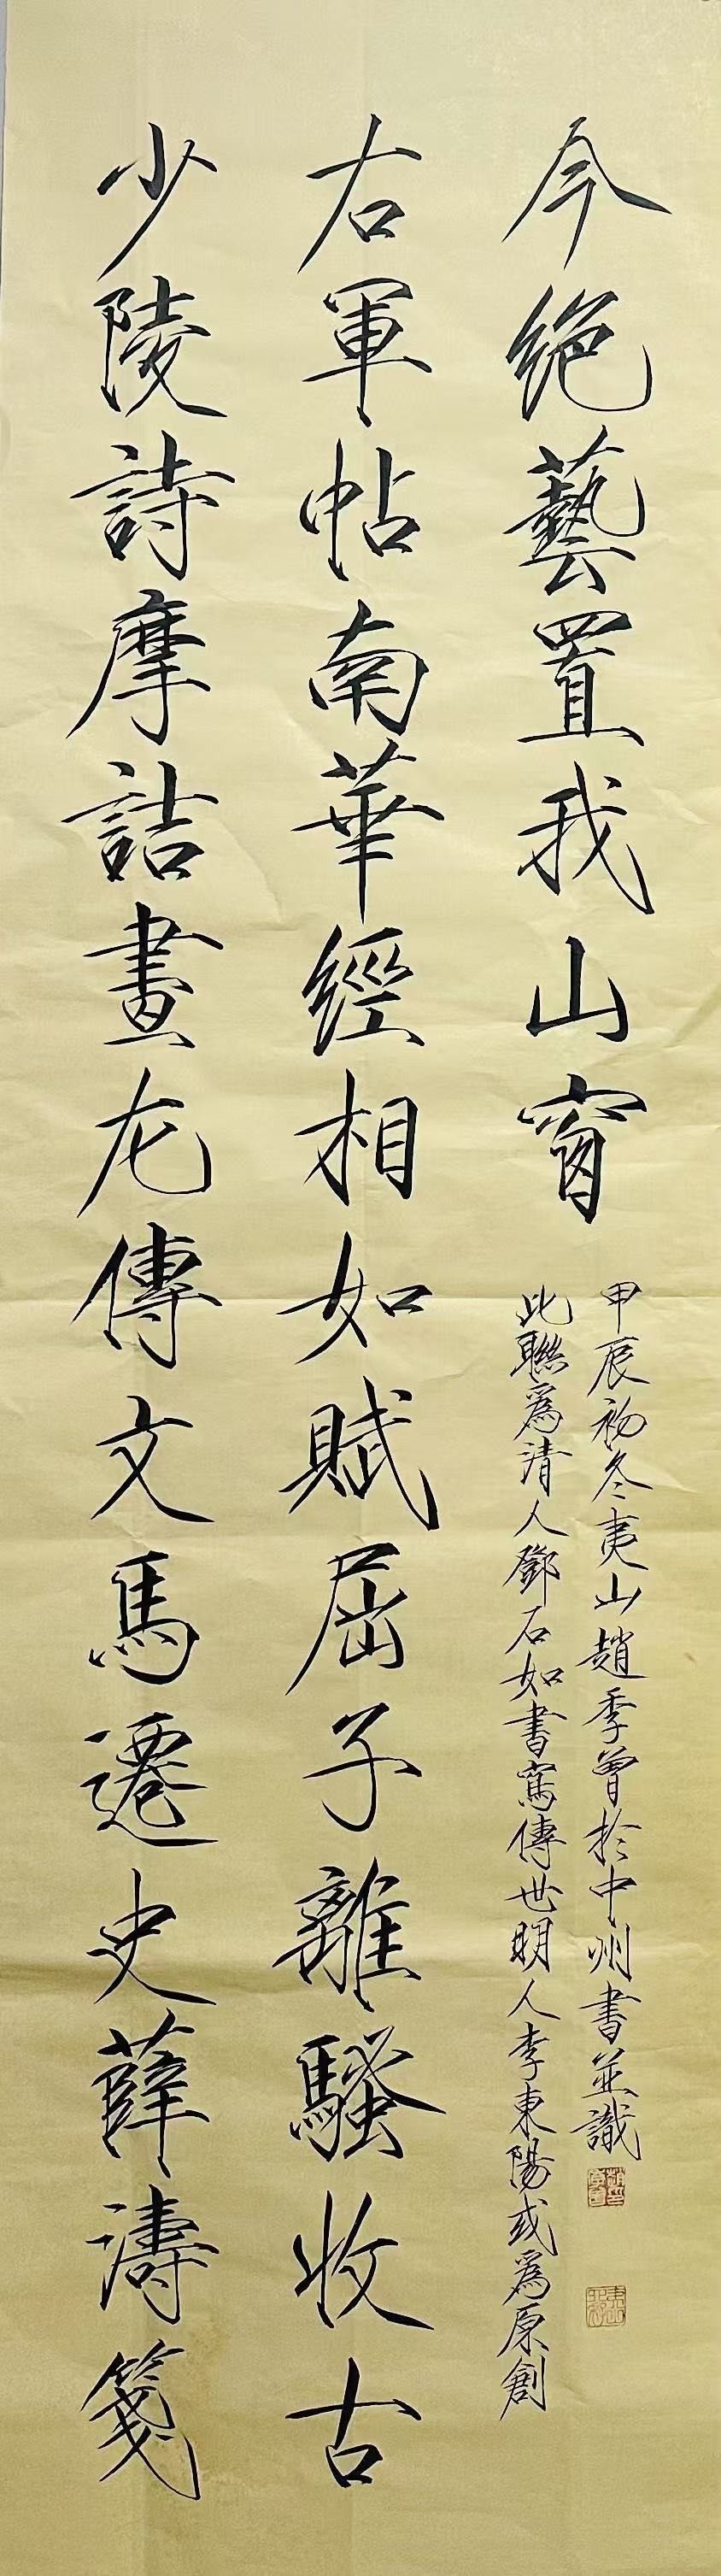 少陵詩摩詰畫左傳文馬遷史薛濤箋
右軍帖南華經相如賦屈子離騷收古
今絕藝置我山窗
此聯爲清人鄧石如書寫傳世明人李東陽或爲原創
甲辰初冬夷山趙季曾於中州書並識